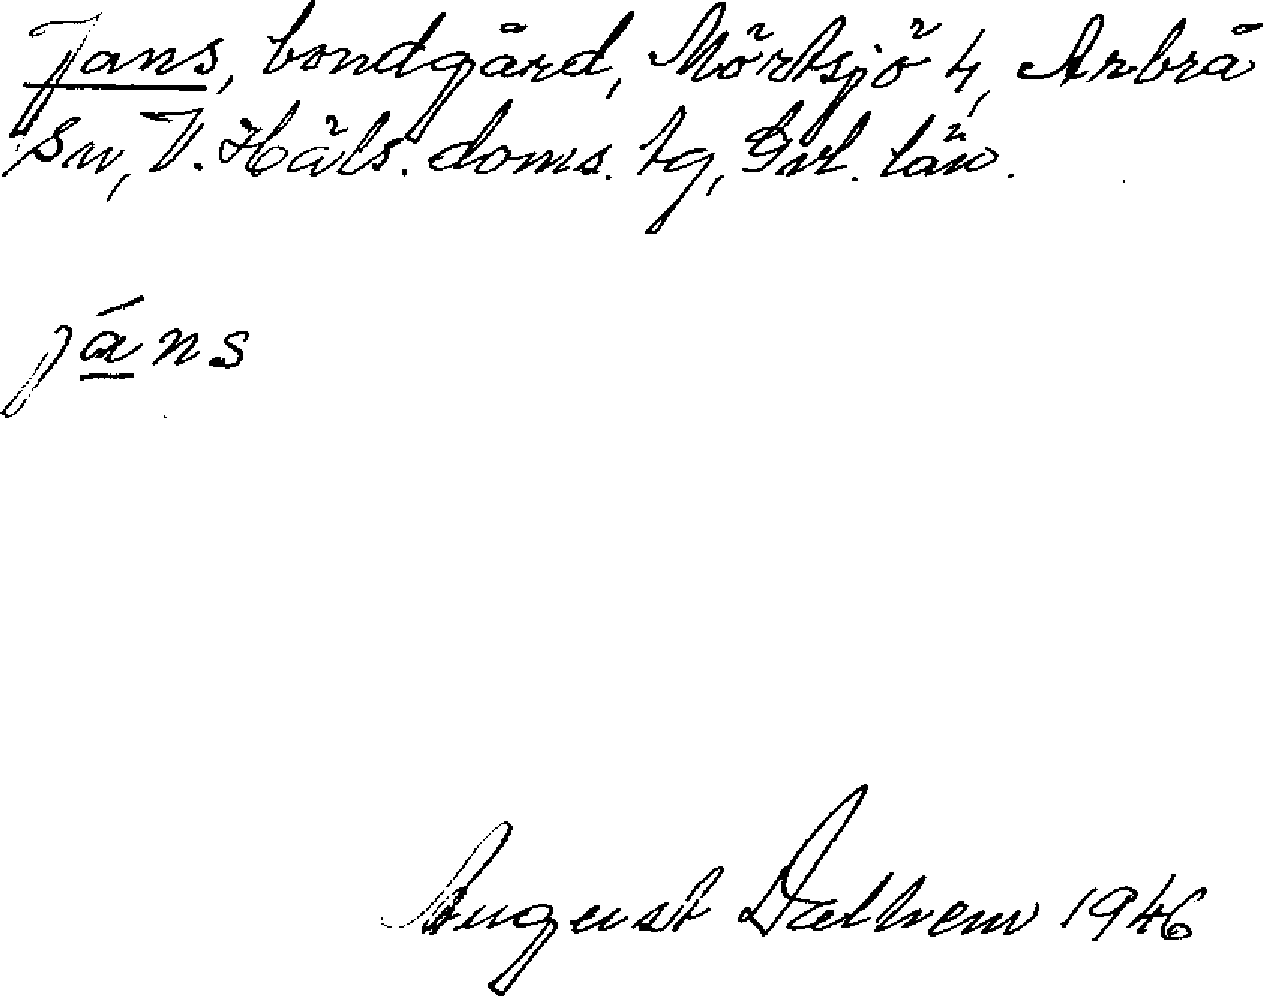 Jans, bondgård, Mörtsjö 4, Arbrå
sn, V. Häls. doms. tg, Gvl. län.
já̲ns
August Dalhem 1946